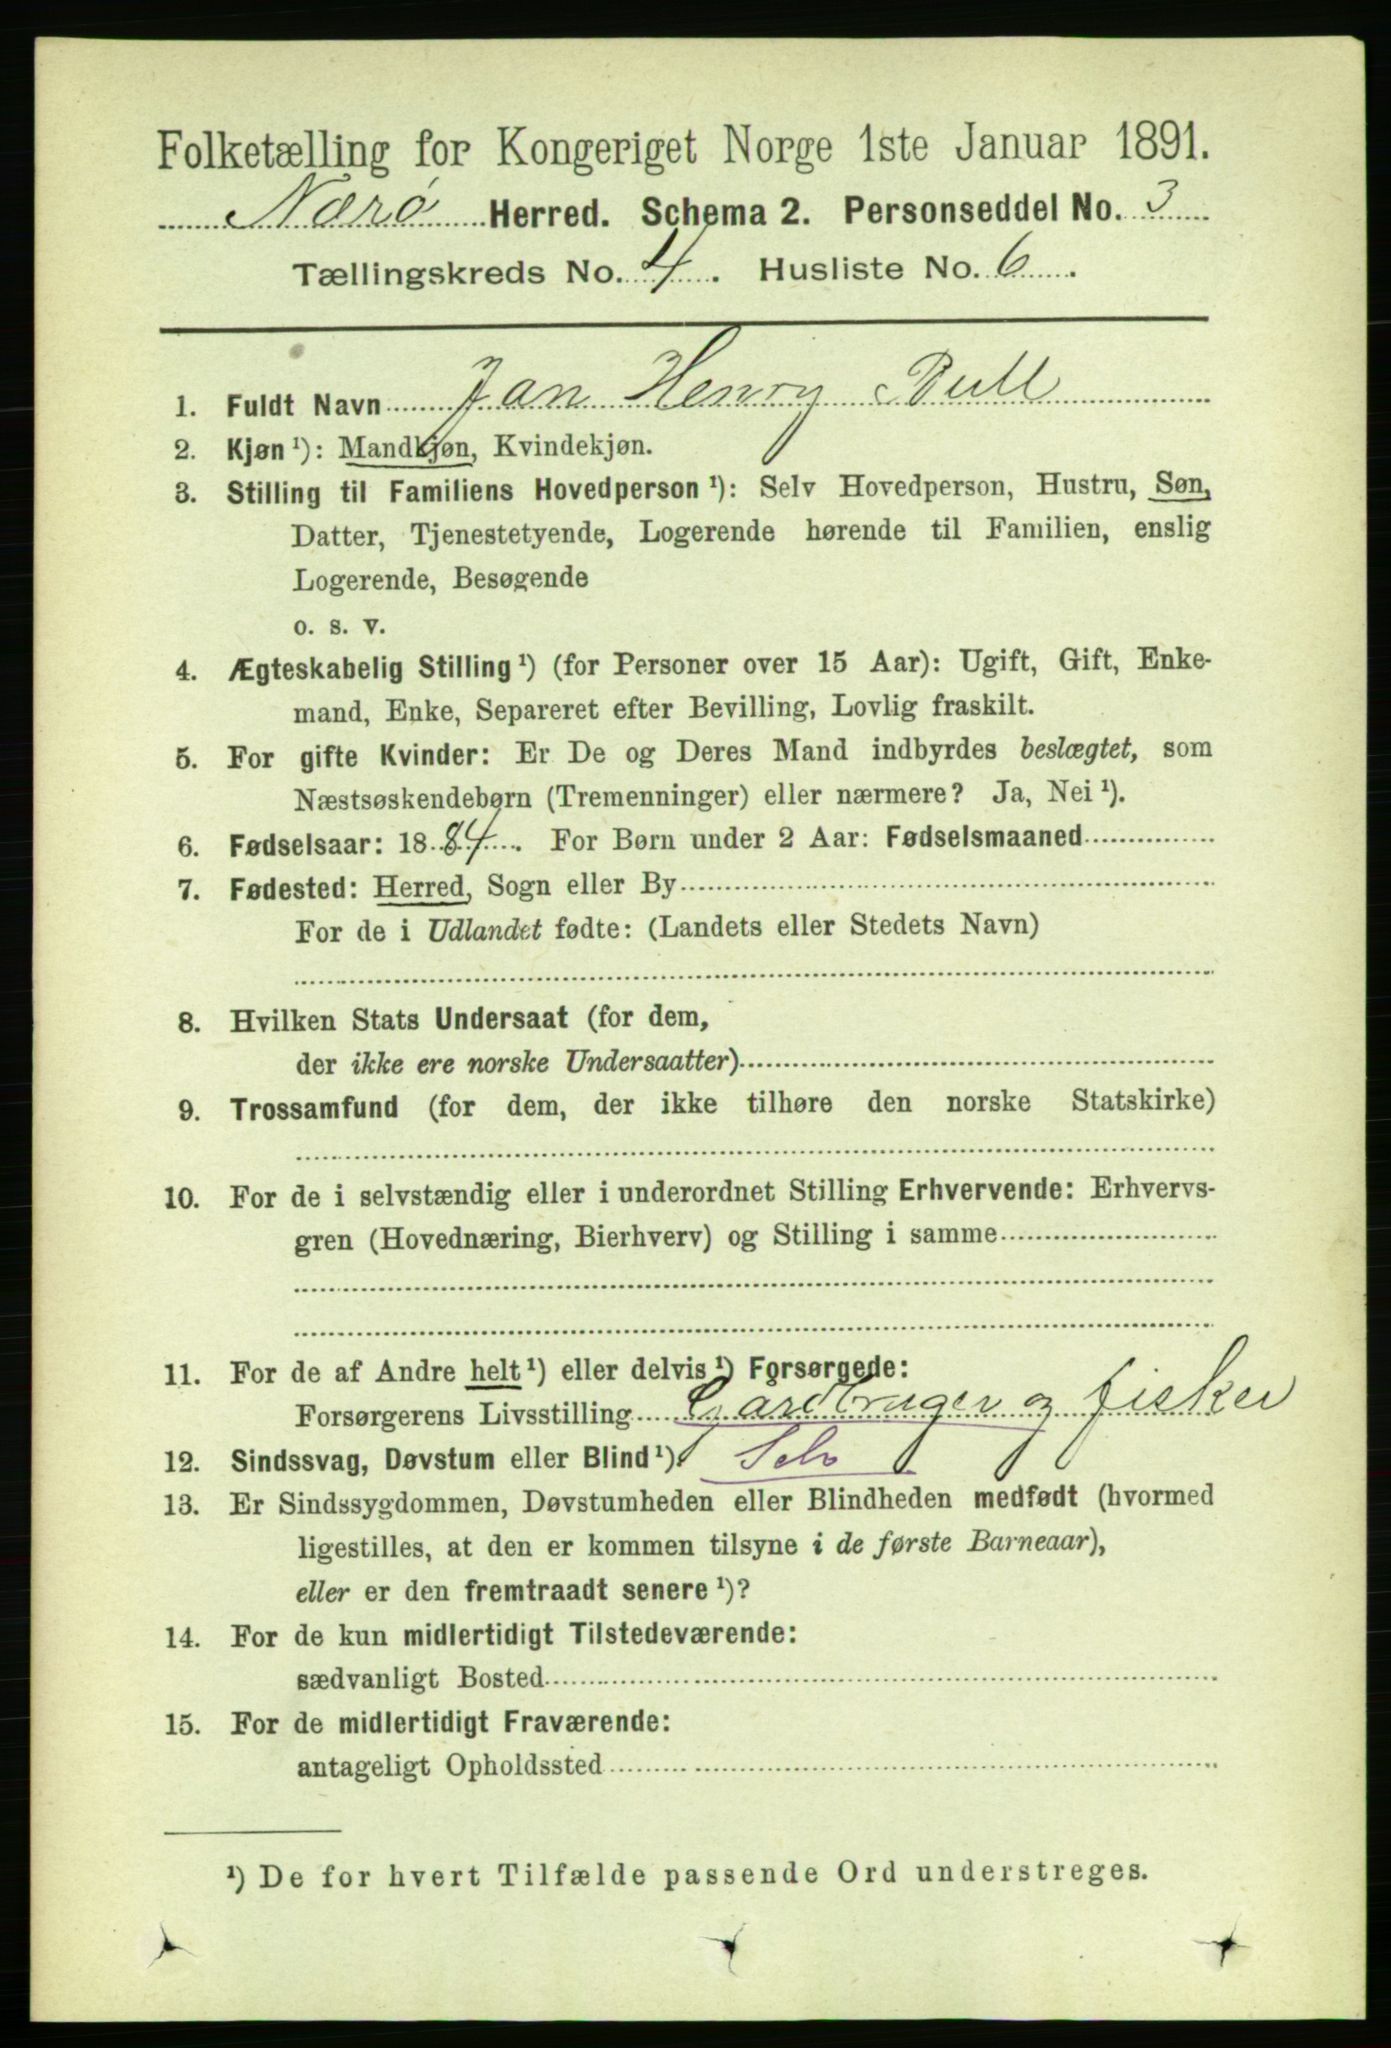 Folketælling for Kongeriget Norge 1ste Januar 1891.
Nærø Herred. Schema 2. Personseddel No. 3
Tællingskreds No. 4. Husliste No. 6.
1. Fuldt Navn Jan Henry Bull
2. Kjøn¹): Mandkjøn, Kvindekjøn.
3. Stilling til Familiens Hovedperson¹): Selv Hovedperson, Hustru, Søn,
Datter, Tjenestetyende, Logerende hørende til Familien, enslig
Logerende, Besøgende
o. s. v.
4. Ægteskabelig Stilling¹) (for Personer over 15 Aar): Ugift, Gift, Enke-
mand, Enke, Separeret efter Bevilling, Lovlig fraskilt.
5. For gifte Kvinder: Er De og Deres Mand indbyrdes beslægtet, som
Næstsøskendebørn (Tremenninger) eller nærmere? Ja, Nei¹).
6. Fødselsaar: 1884. For Børn under 2 Aar: Fødselsmaaned
7. Fødested: Herred, Sogn eller By
For de i Udlandet fødte: (Landets eller Stedets Navn)
8. Hvilken Stats Undersaat (for dem,
der ikke ere norske Undersaatter)
9. Trossamfund (for dem, der ikke tilhøre den norske Statskirke)
10. For de i selvstændig eller i underordnet Stilling Erhvervende: Erhvervs-
gren (Hovednæring, Bierhverv) og Stilling i samme
11. For de af Andre helt¹) eller delvis¹) Forsørgede:
Forsørgerens Livsstilling Gardbruger og fisker
12. Sindssvag, Døvstum eller Blind¹). Selv
13. Er Sindssygdommen, Døvstumheden eller Blindheden medfødt (hvormed
ligestilles, at den er kommen tilsyne i de første Barneaar),
eller er den fremtraadt senere¹)?
14. For de kun midlertidigt Tilstedeværende:
sædvanligt Bosted
15. For de midlertidigt Fraværende:
antageligt Opholdssted
¹) De for hvert Tilfælde passende Ord understreges.